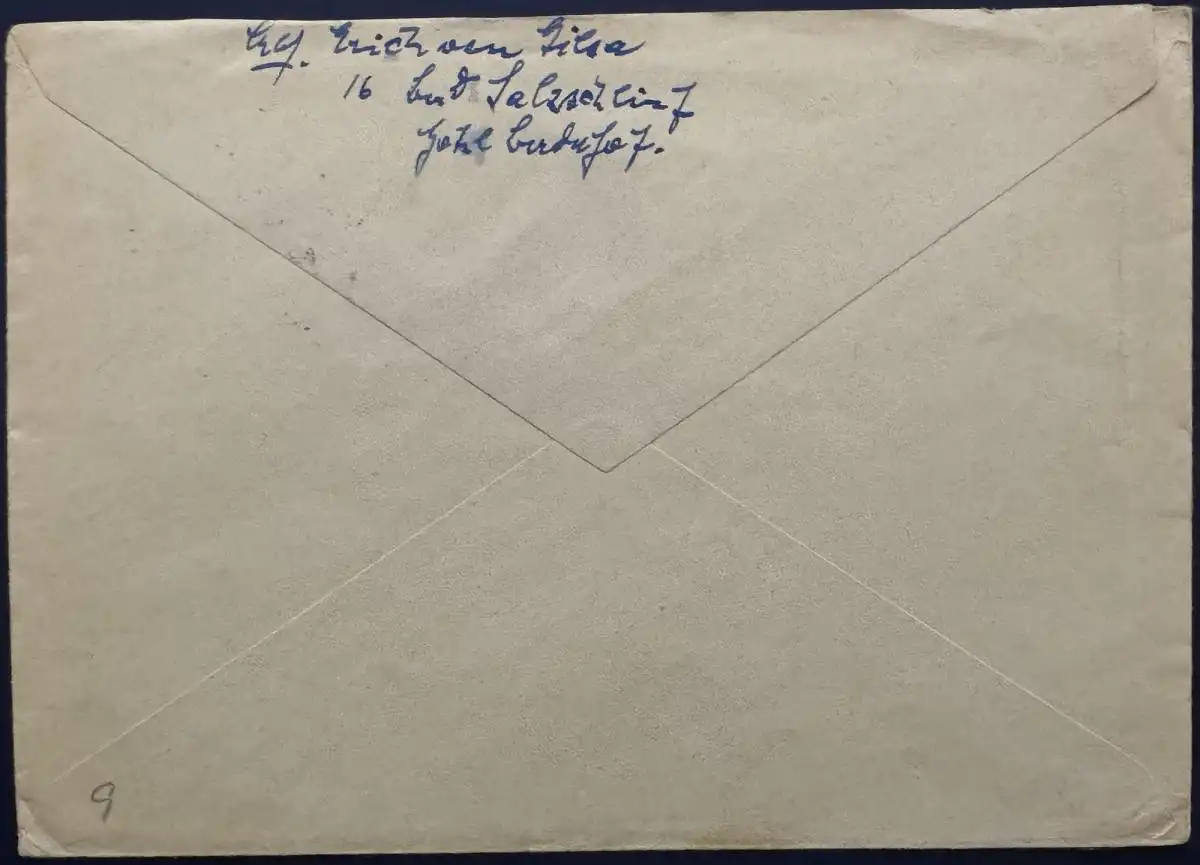 Erich von Gilsa
16 Bad Salzschlirf
Hotel Badehof.
9